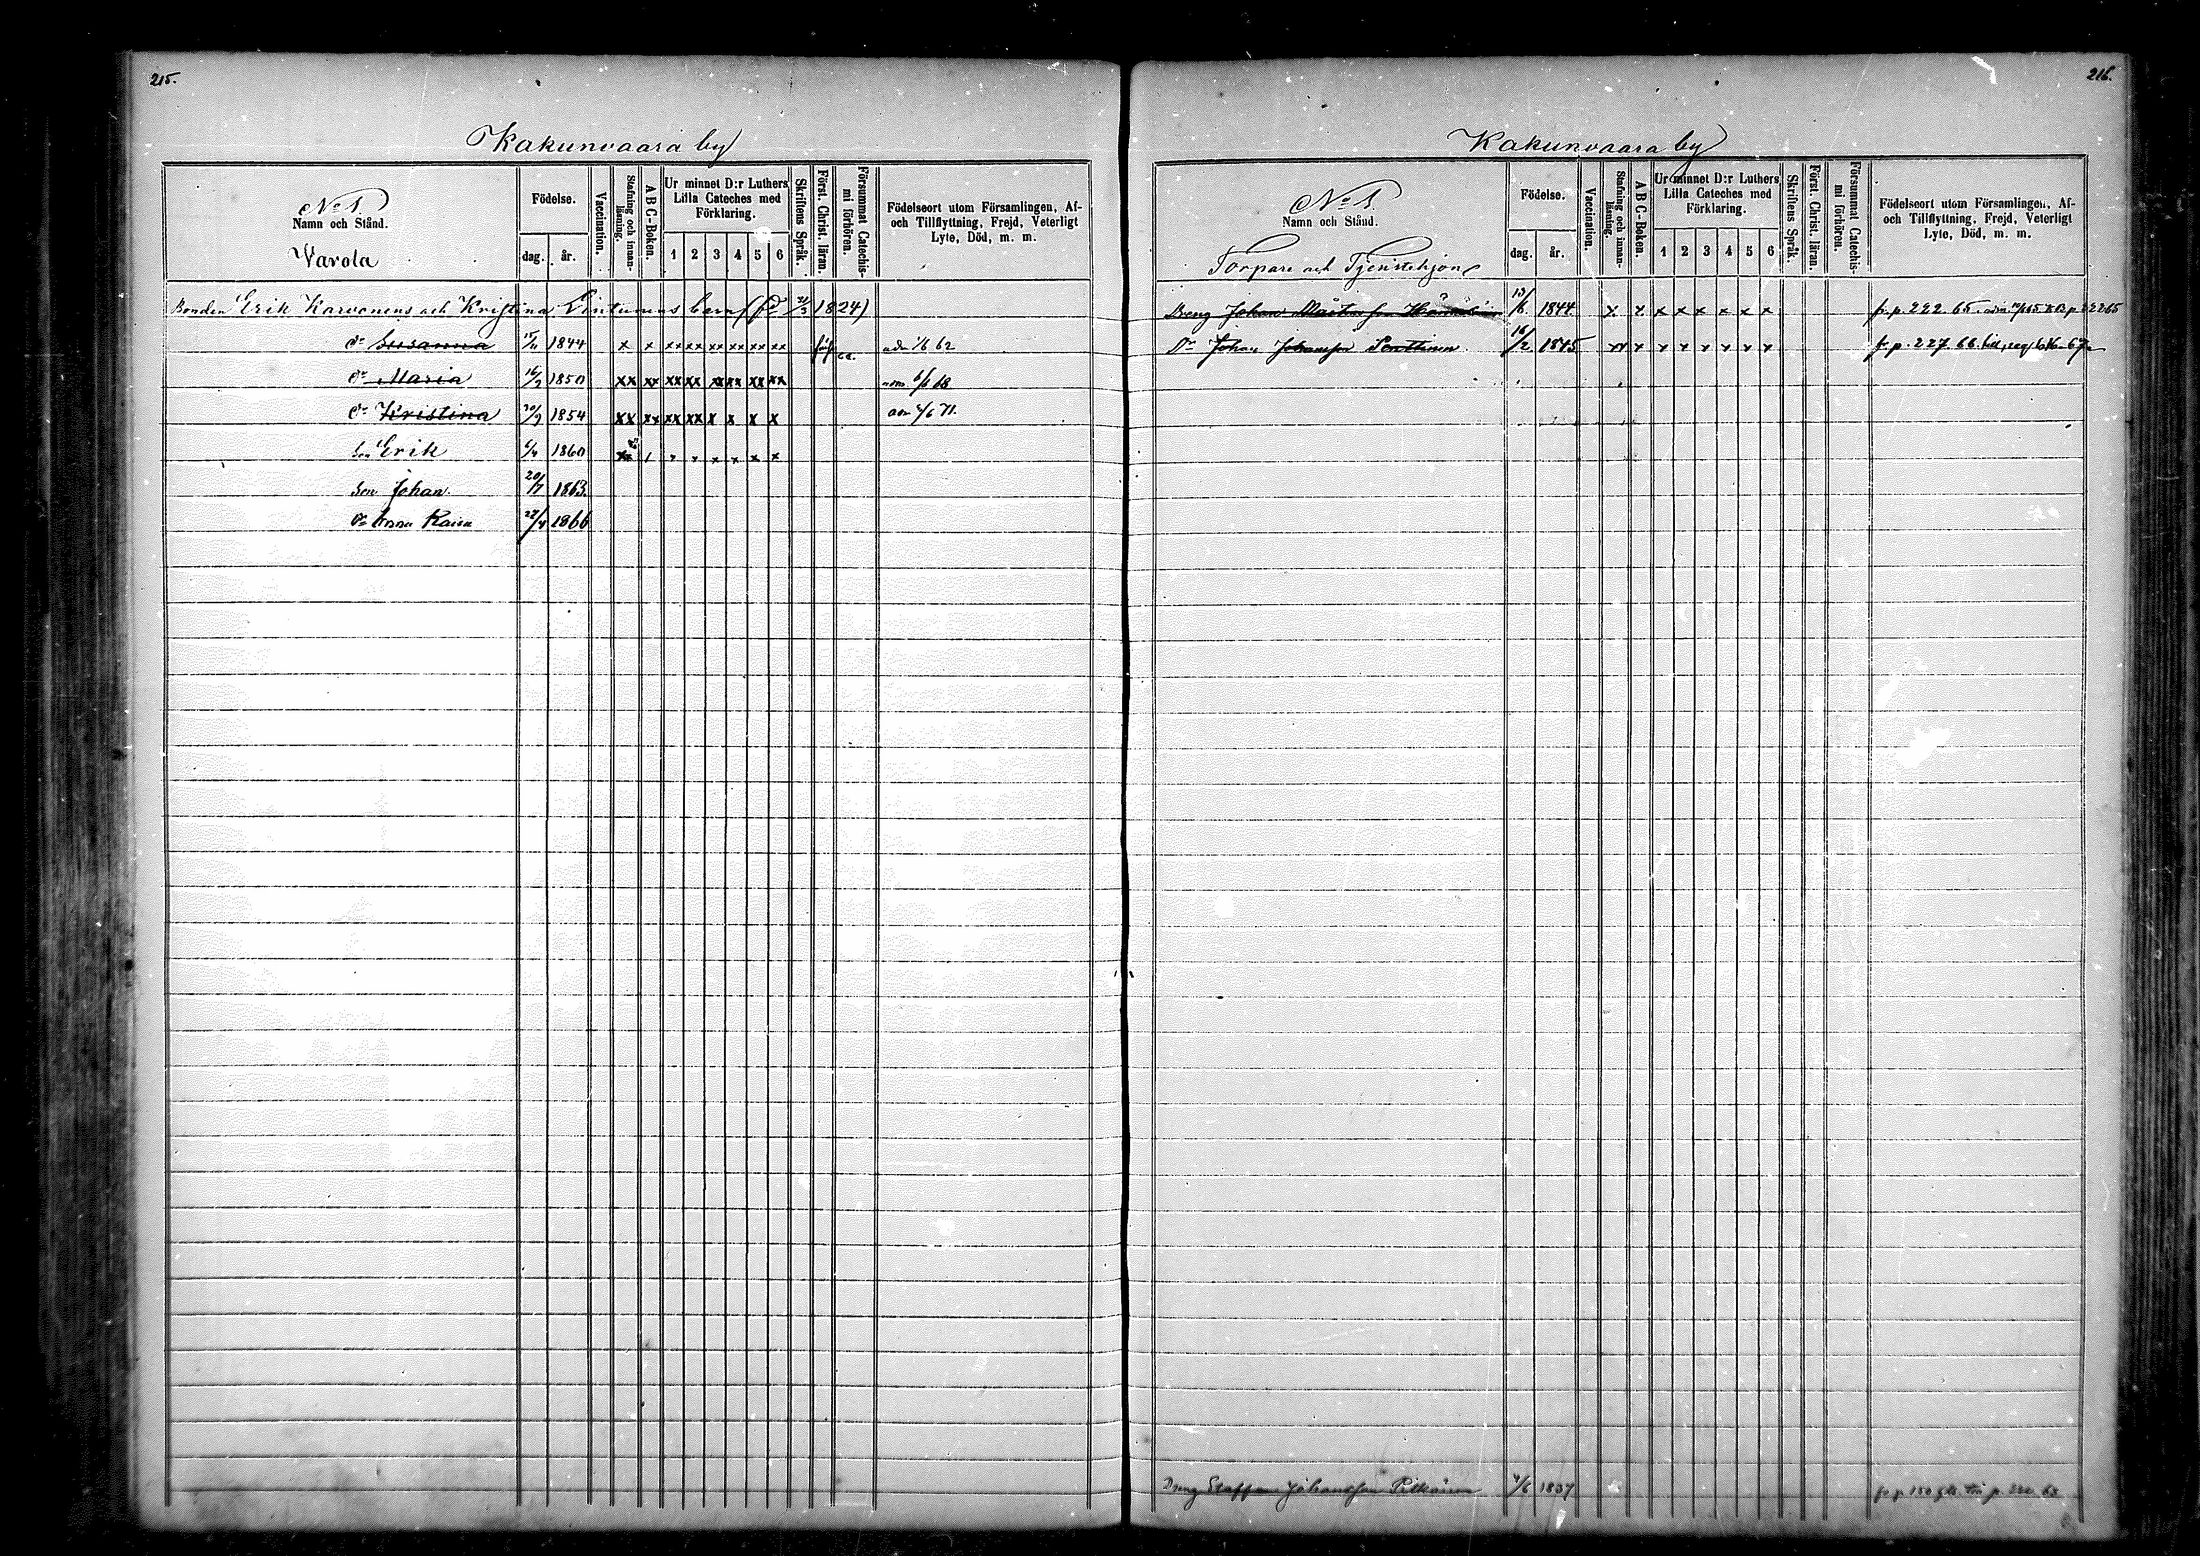 215.
Kakunvaara by
No 1.
Namn och Stånd.
Varola
Födelse.
dag.
år.
Vaccination.
Stafning och innanläsning.
ABC-Boken.
Ur minnet D:r Luthers Lilla Cateches med Förklaring.
1 2 3 4 5 6
Skriftens Språk.
Först. Christ. läran.
Försummat Catechismi förhören.
Födelseort utom Församlingen, Af- och Tillflyttning, Frejd, Veterligt Lyte, Död, m. m.
Bonden Erik Karvonens och Kristina Pintunens barn (fd 21/3 1824)
Dr Susanna 15/11 1844 x x xx xx xx xx xx xx adm 1/6 62
Dr Maria 16/9 1850 xx xx xx xx xx xx xx xx 6/6 68
Dr Kristina 20/9 1854 xx xx xx xx x x x x adm 4/6 71.
Son Erik 1860
Son Johan 20/7 1863.
Dr Anna Kaisa 22/4 1866
216.
Kakunvaara by
No 1
Namn och Stånd.
Torpare och Tjenstehjon
Födelse.
dag.
år.
Vaccination.
Stafning och innanläsning.
ABC-Boken.
Ur minnet D:r Luthers Lilla Cateches med Förklaring.
1 2 3 4 5 6
Skriftens Språk.
Först. Christ. läran.
Försummat Catechismi förhören.
Födelseort utom Församlingen, Af- och Tillflyttning, Frejd, Veterligt Lyte, Död, m. m.
Dreng Johan 13/6 1844 x x x x x x x x fr. p. 222. 65.
Dr Johan Johansson Penttinen 16/2 1845 xx x x x x x x x fr. p. 227. 66.
Dreng Staffan Johansson 1837 fr p. 150